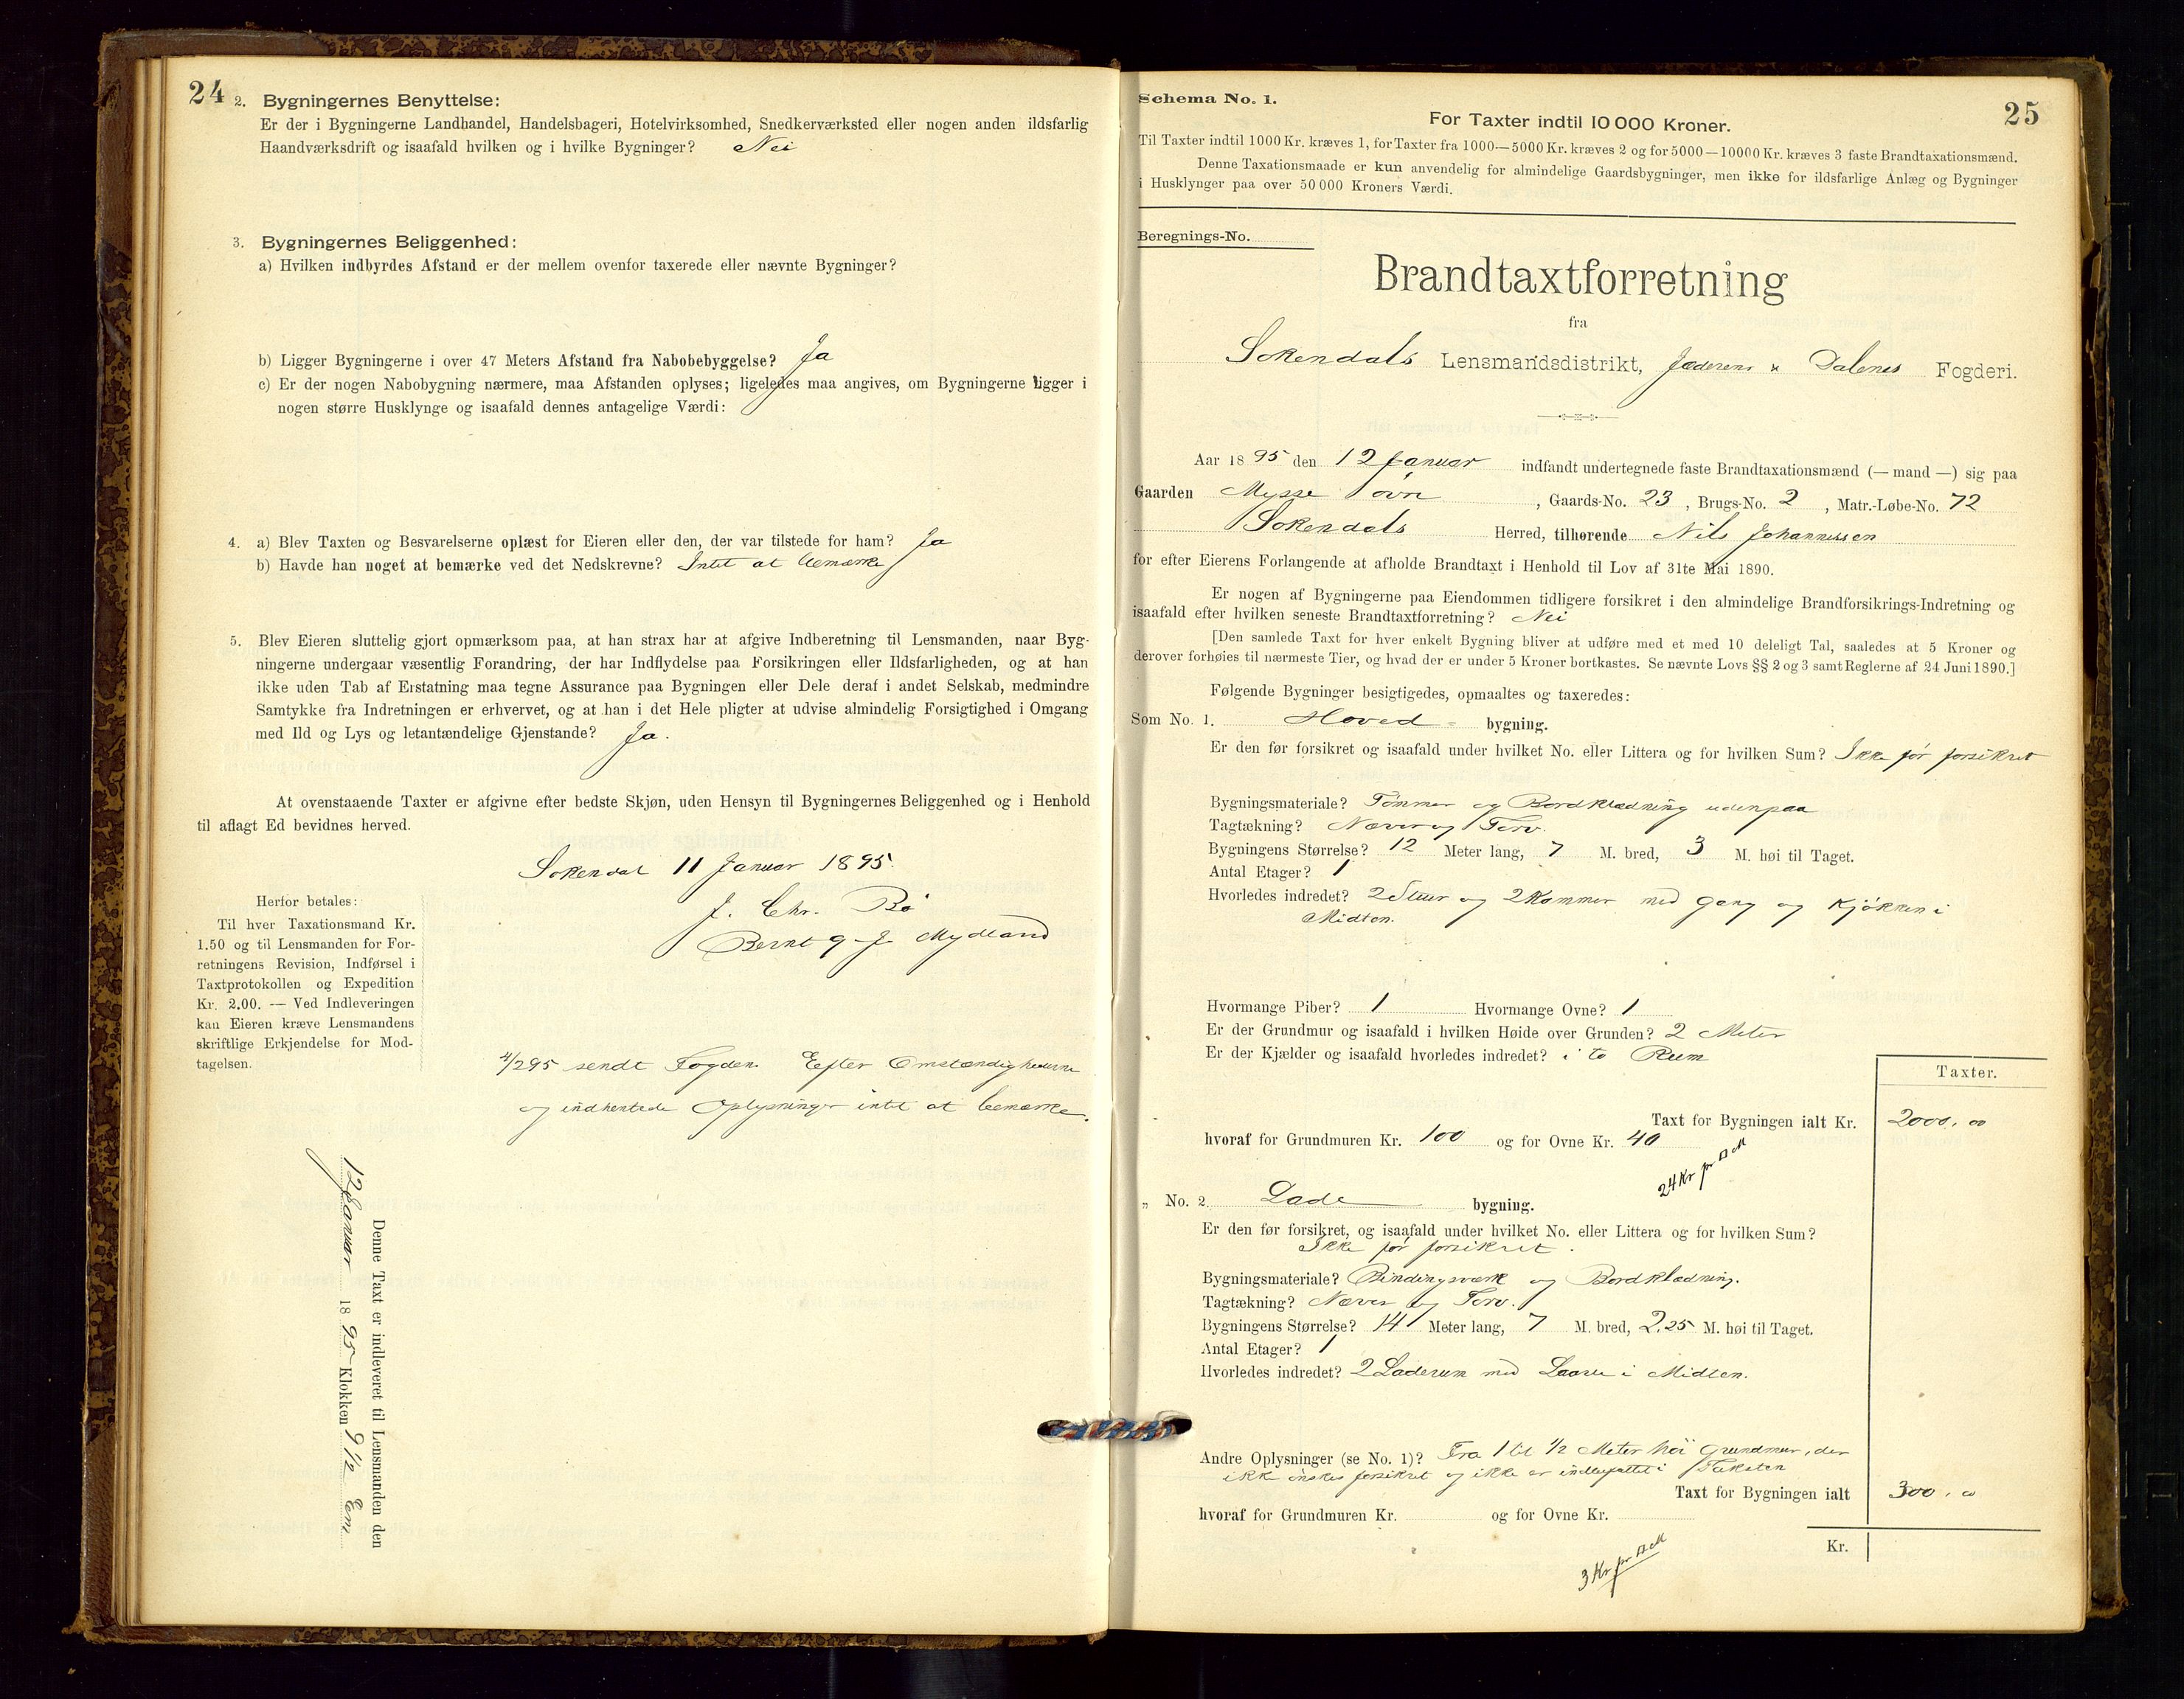 24
2. Bygningernes Benyttelse:
Er der i Bygningerne Landhandel, Handelsbageri, Hotelvirksomhed, Snedkerværksted eller nogen anden ildsfarlig
Haandværksdrift og isaafald hvilken og i hvilke Bygninger? Nei
3. Bygningernes Beliggenhed:
a) Hvilken indbyrdes Afstand er der mellem ovenfor taxerede eller nævnte Bygninger?
b) Ligger Bygningerne i over 47 Meters Afstand fra Nabobebyggelse? Ja
c) Er der nogen Nabobygning nærmere, maa Afstanden oplyses; ligeledes maa angives, om Bygningerne ligger i
nogen større Husklynge og isaafald dennes antagelige Værdi:
4. a) Blev Taxten og Besvarelserne oplæst for Eieren eller den, der var tilstede for ham? Ja
b) Havde han noget at bemærke ved det Nedskrevne? Intet at bemærke
5. Blev Eieren sluttelig gjort opmærksom paa, at han strax har at afgive Indberetning til Lensmanden, naar Byg-
ningerne undergaar væsentlig Forandring, der har Indflydelse paa Forsikringen eller Ildsfarligheden, og at han
ikke uden Tab af Erstatning maa tegne Assurance paa Bygningen eller Dele deraf i andet Selskab, medmindre
Samtykke fra Indretningen er erhvervet, og at han i det Hele pligter at udvise almindelig Forsigtighed i Omgang
med Ild og Lys og letantændelige Gjenstande? Ja.
At ovenstaaende Taxter er afgivne efter bedste Skjøn, uden Hensyn til Bygningernes Beliggenhed og i Henhold
til aflagt Ed bevidnes herved.
Sokendal 11 Januar 1895.
J. Chr. Bø
Bernt J. Mydland
Herfor betales:
Til hver Taxationsmand Kr.
1.50 og til Lensmanden for For-
retningens Revision, Indførsel i
Taxtprotokollen og Expedition
Kr. 2.00. — Ved Indleveringen
kan Eieren kræve Lensmandens
skriftlige Erkjendelse for Mod-
tagelsen.
4/2 95 sendt Fogden. Efter Omstændighederne
og indhentede Oplysninger intet at bemærke.
Denne Taxt er indleveret til Lensmanden den
12 Januar 1895 Klokken 9 1/2 Em
Schema No. 1.
25
For Taxter indtil 10 000 Kroner.
Til Taxter indtil 1000 Kr. kræves 1, for Taxter fra 1000—5000 Kr. kræves 2 og for 5000—10000 Kr. kræves 3 faste Brandtaxationsmænd.
Denne Taxationsmaade er kun anvendelig for almindelige Gaardsbygninger, men ikke for ildsfarlige Anlæg og Bygninger
i Husklynger paa over 50 000 Kroners Værdi.
Beregnings-No.
Brandtaxtforretning
fra
Sokendals Lensmandsdistrikt, Jæderens & Dalenes Fogderi.
Aar 1895 den 12 Januar indfandt undertegnede faste Brandtaxationsmænd (— mand —) sig paa
Gaarden Mysse , Gaards-No. 23 , Brugs-No. 2 , Matr.-Løbe-No. 72
Sokendals Herred, tilhørende Nils Johannessen
for efter Eierens Forlangende at afholde Brandtaxt i Henhold til Lov af 31te Mai 1890.
Er nogen af Bygningerne paa Eiendommen tidligere forsikret i den almindelige Brandforsikrings-Indretning og
isaafald efter hvilken seneste Brandtaxtforretning? Nei
[Den samlede Taxt for hver enkelt Bygning bliver at udføre med et med 10 deleligt Tal, saaledes at 5 Kroner og
derover forhøies til nærmeste Tier, og hvad der er under 5 Kroner bortkastes. Se nævnte Lovs §§ 2 og 3 samt Reglerne af 24 Juni 1890.]
Følgende Bygninger besigtigedes, opmaaltes og taxeredes:
Som No. 1. Hoved- bygning.
Er den før forsikret og isaafald under hvilket No. eller Littera og for hvilken Sum? Ikke før forsikret
Bygningsmateriale? Tømmer og Bordklædning udenpaa
Tagtækning? Næver og Torv.
Bygningens Størrelse? 12 Meter lang, 7 M. bred, 3 M. høi til Taget.
Antal Etager? 1
Hvorledes indredet? 2 Stuer og 2 Kammer med gang og Kjøkken i
Midten.
Hvormange Piber? 1 Hvormange Ovne? 1
Er der Grundmur og isaafald i hvilken Høide over Grunden? 2 Meter
Er der Kjælder og isaafald hvorledes indredet? i to Rum
Taxter.
Taxt for Bygningen ialt Kr. 2000.00
hvoraf for Grundmuren Kr. 100 og for Ovne Kr. 40
24 Kr pr □ M
„ No. 2. Lade bygning.
Er den før forsikret, og isaafald under hvilket No. eller Littera og for hvilken Sum?
Ikke før forsikret.
Bygningsmateriale? Bindingsværk og Bordklædning.
Tagtækning? Næver og Torv.
Bygningens Størrelse? 14 Meter lang, 7 M. bred, 2,25 M. høi til Taget.
Antal Etager? 1
Hvorledes indredet? 2 Laderum med Laave i Midten.
Andre Oplysninger (se No. 1)? Fra 1 til 1/2 Meter høi Grundmur, der
ikke ønskes forsikret og ikke er indbefattet i Taksten
Taxt for Bygningen ialt 300.00
hvoraf for Grundmuren Kr. og for Ovne Kr.
3 Kr pr □ M
Kr.